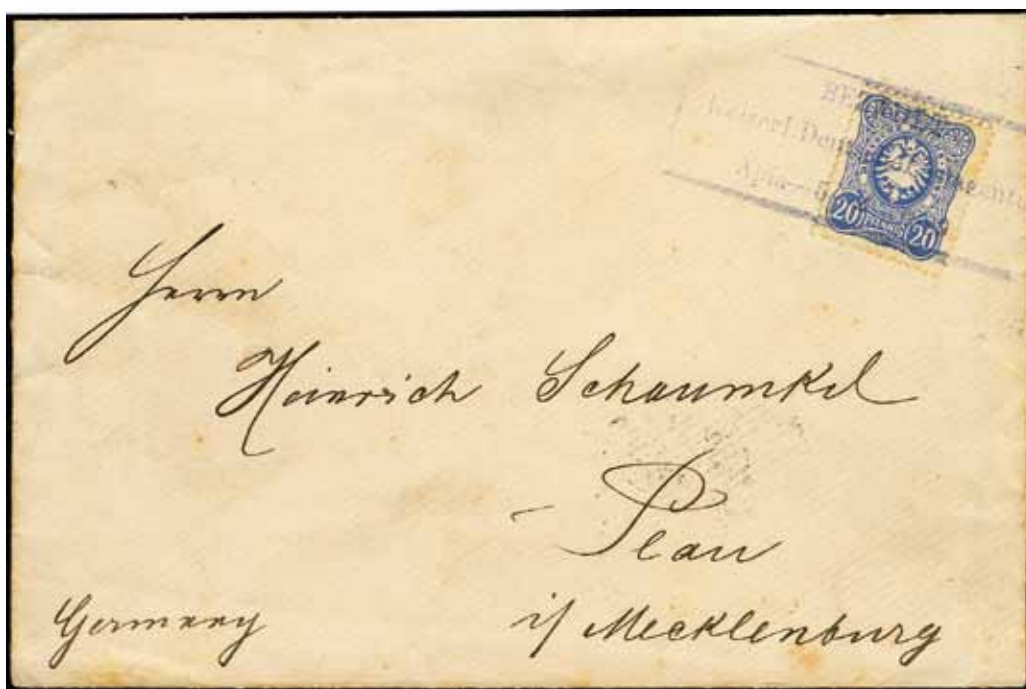 Kaiserl. Deut
Apia
20 PFENNIG 20
Herrn
Heinrich Schaumkel
Plau
i/ Mecklenburg
Germany